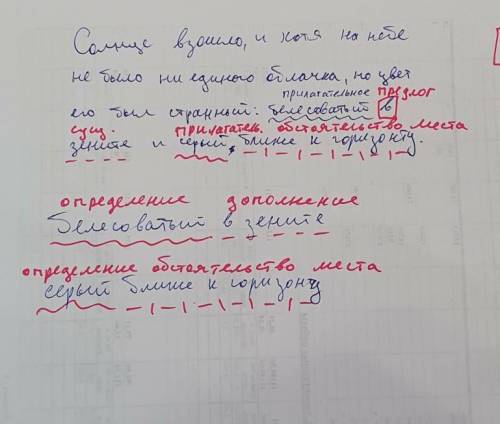 Солнце взошло, и хотя на небе
не было ни единого облачка, но цвет
прилагательное предлог
его был странный: белесоватый в
сущ. прилагатель. обстоятельство места
зените и серый, ближе к горизонту.
определение дополнение
белесоватый в зените
определение обстоятельство места
серый ближе к горизонту